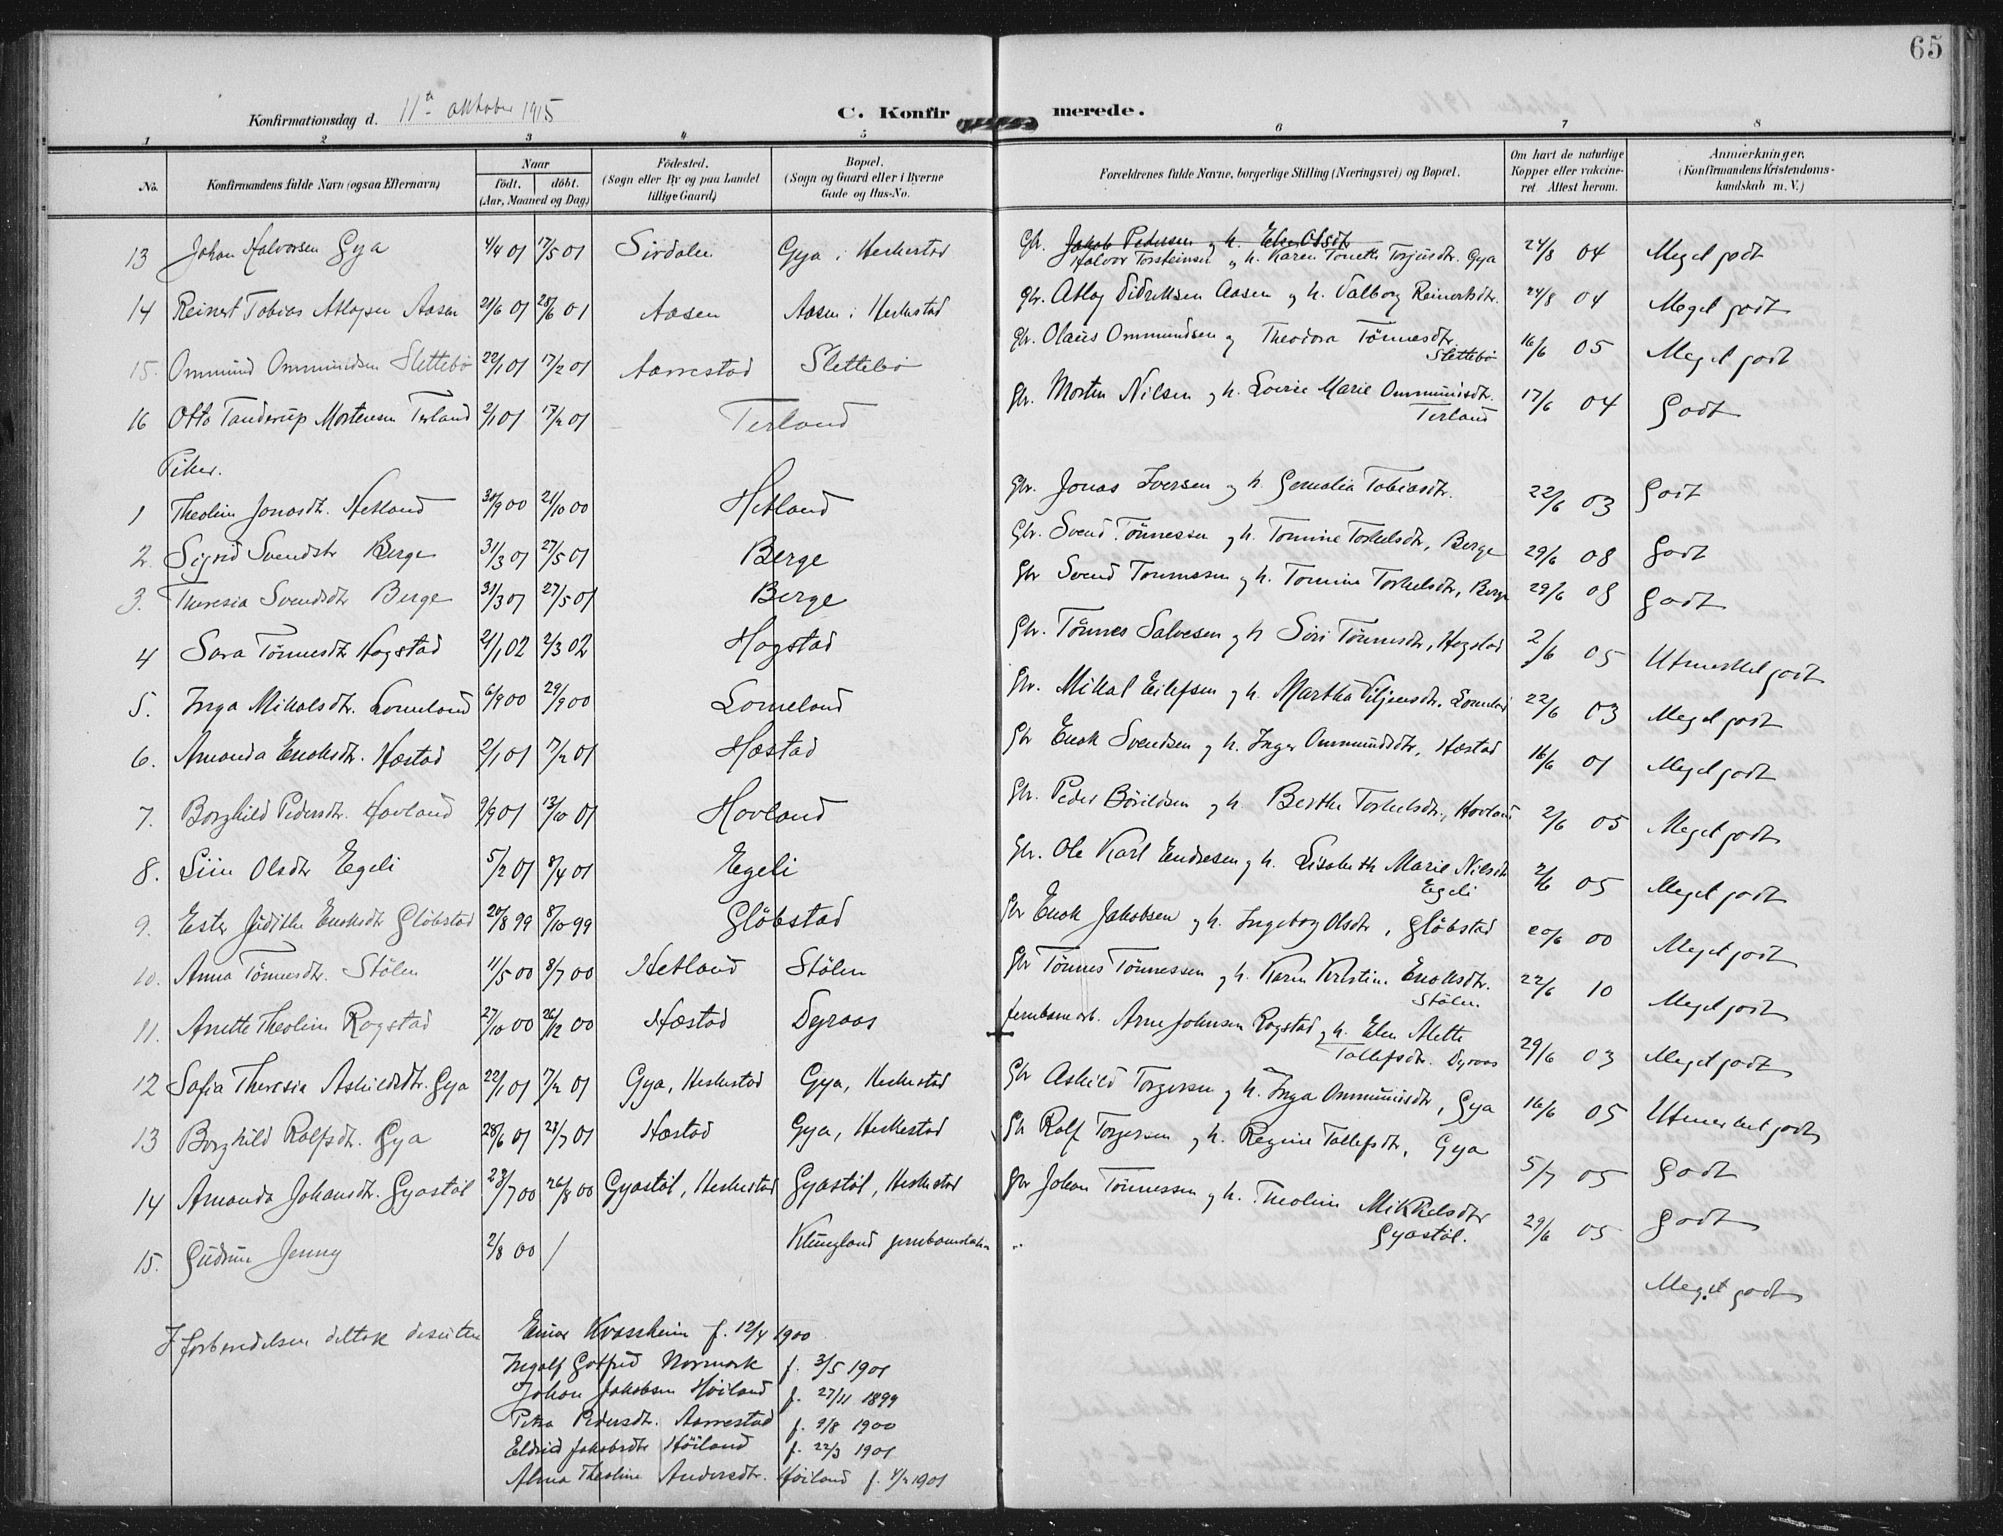 65
Konfirmationsdag d. 11te oktober 1915
C. Konfirmerede.
1 2 3 4 5 6 7 8
No. Konfirmandens fulde Navn (ogsaa Efternavn) Naar født, døbt. (Aar, Maaned og Dag) Fødested. (Sogn eller By og paa Landet tillige Gaard) Bopæl. (Sogn og Gaard eller i Byerne Gade og Hus-No. Forældrenes fulde Navne, borgerlige Stilling (Næringsvei) og Bopæl. Om havt de naturlige Kopper eller vakcineret Attest herom. Anmærkninger. (Konfirmandens Kristendomskundskab m. V.)
13 Johan Halvorsen Gya 4/4 01 17/5 01 Sirdalen Gya i Heskestad Gbr. Jakob Pedersen og h. Halvor Torsteinsen og h. Karen Tonette Torjusdtr. Gya 24/8 04 Meget godt
14 Reinert Tobias Atlagsen Aasen 21/6 01 28/6 01 Aasen Aasen i Heskestad Gbr. Atlag Didriksen Aasen og h. Valborg Reinertsdtr. 24/8 04 Meget godt
15. Ommund Ommundsen Slettebø 22/1 01 17/2 01 Aarrestad Slettebø Gbr. Olaus Ommundsen og Theodora Tönnesdtr. Slettebö 16/6 05 Meget godt
16 Otto Tanderup Mortensen Terland 2/1 01 17/2 01 Terland Gbr. Morten Nilsen og h. Lovise Marie Ommundsdtr. Terland 17/6 04 Godt
Piker.
1 Theoline Jonasdtr. Hetland 30/9 00 21/10 00 Hetland Gbr. Jonas Iversen og h. Gemalia Tobiasdtr. 22/6 03 Godt
2. Sigrid Svendsdtr Berge 31/3 01 27/5 01 Berge Gbr. Svend Tönnessen og h. Tomine Torkelsdtr, Berge 29/6 08 Godt
3. Theresia Svendsdtr Berge 31/3 01 27/5 01 Berge Gbr Svend Tonnessen og h. Tomine Torkelsdtr, Berge 29/6 08 Godt
4 Sara Tönnesdtr Hogstad 21/1 02 2/3 02 Hogstad Gbr. Tönnes Salvesen og h Siri Tönnesdtr, Hogstad 2/6 05 Utmerket godt
5. Inga Mikalsdtr. Lomeland 6/9 00 29/9 00 Lomeland Gbr. Mikal Eilefsen og h. Martha Siljeusdtr. Lomeland 22/6 03 Meget godt
6. Amanda Enoksdtr. Hæstad 2/1 01 7/2 01 Hæstad Gbr Enok Svendsen og h. Inger Ommundsdtr, Hæstad 16/6 01 Meget godt
7. Borghild Pedersdtr. Hovland 9/9 01 13/10 01 Hovland Gbr. Peder Börildsen og h. Berthe Torkelsdtr., Hovland 2/6 05 Meget godt
8. Siin Olsdtr Egeli 5/2 01 8/4 01 Egeli Gbr. Ole Karl Endresen og h. Lisabeth Marie Nilsdtr Egeli 2/6 05 Meget godt
9. Ester Judithe Enoksdtr Glöbstad 20/8 99 8/10 99 Glöbstad Gbr Enok Jakobsen og h. Ingeborg Olsdtr, Glöbstad 20/6 00 Meget godt
10. Anna Tönnesdtr. Stölen 11/5 00 8/7 00 Hetland Stölen Gbr Tönnes Tönnessen og h. Karen Kirstine Enoksdtr. Stölen. 22/6 10 Meget godt
11. Anette Theoline Rogstad 27/10 00 26/12 00 Hæstad Dyraas Jernbanearb. Arne Johnsen Rogstad og h. Elen Mette Tollefsdtr. Dyraas 29/6 03 Meget godt
12 Sofia Theresia Askildsdtr. Gya 22/1 01 7/2 01 Gya, Heskestad Gya, Heskestad Gbr Askild Torgersen og h. Inga Ommundsdtr, Gya 16/6 05 Utmerket godt
13 Borghild Rolfsdtr. Gya 28/6 01 28/7 01 Hæstad Gya, Heskestad Gbr Rolf Torgersen og h. Regine Tollefsdtr, Gya 5/7 05 Godt
14 Amanda Johansdtr. Gyastöl 23/7 00 26/8 00 Gyastöl, Heskestad Gyastöl, Heskestad Gbr Johan Tönnessen og h. Theoline Mikkelsdtr Gyastöl. 29/6 05 Godt
15. Gudrun Jenny 2/8 00 / Klungland jernbanestation " Meget godt
I forberedelsen deltok desuten Einar Kvassheim f. 12/4 1900
Ingolf Gotfred Normork f. 3/5 1901
Johan Jakobsen Höiland f. 27/11 1899
Petra Pedersdtr. Aarrestad f. 9/8 1900
Eldrid Jakobsdtr Höiland f. 22/3 1901
Alma Theoline Andersdtr. Höiland f. 4/2 1901